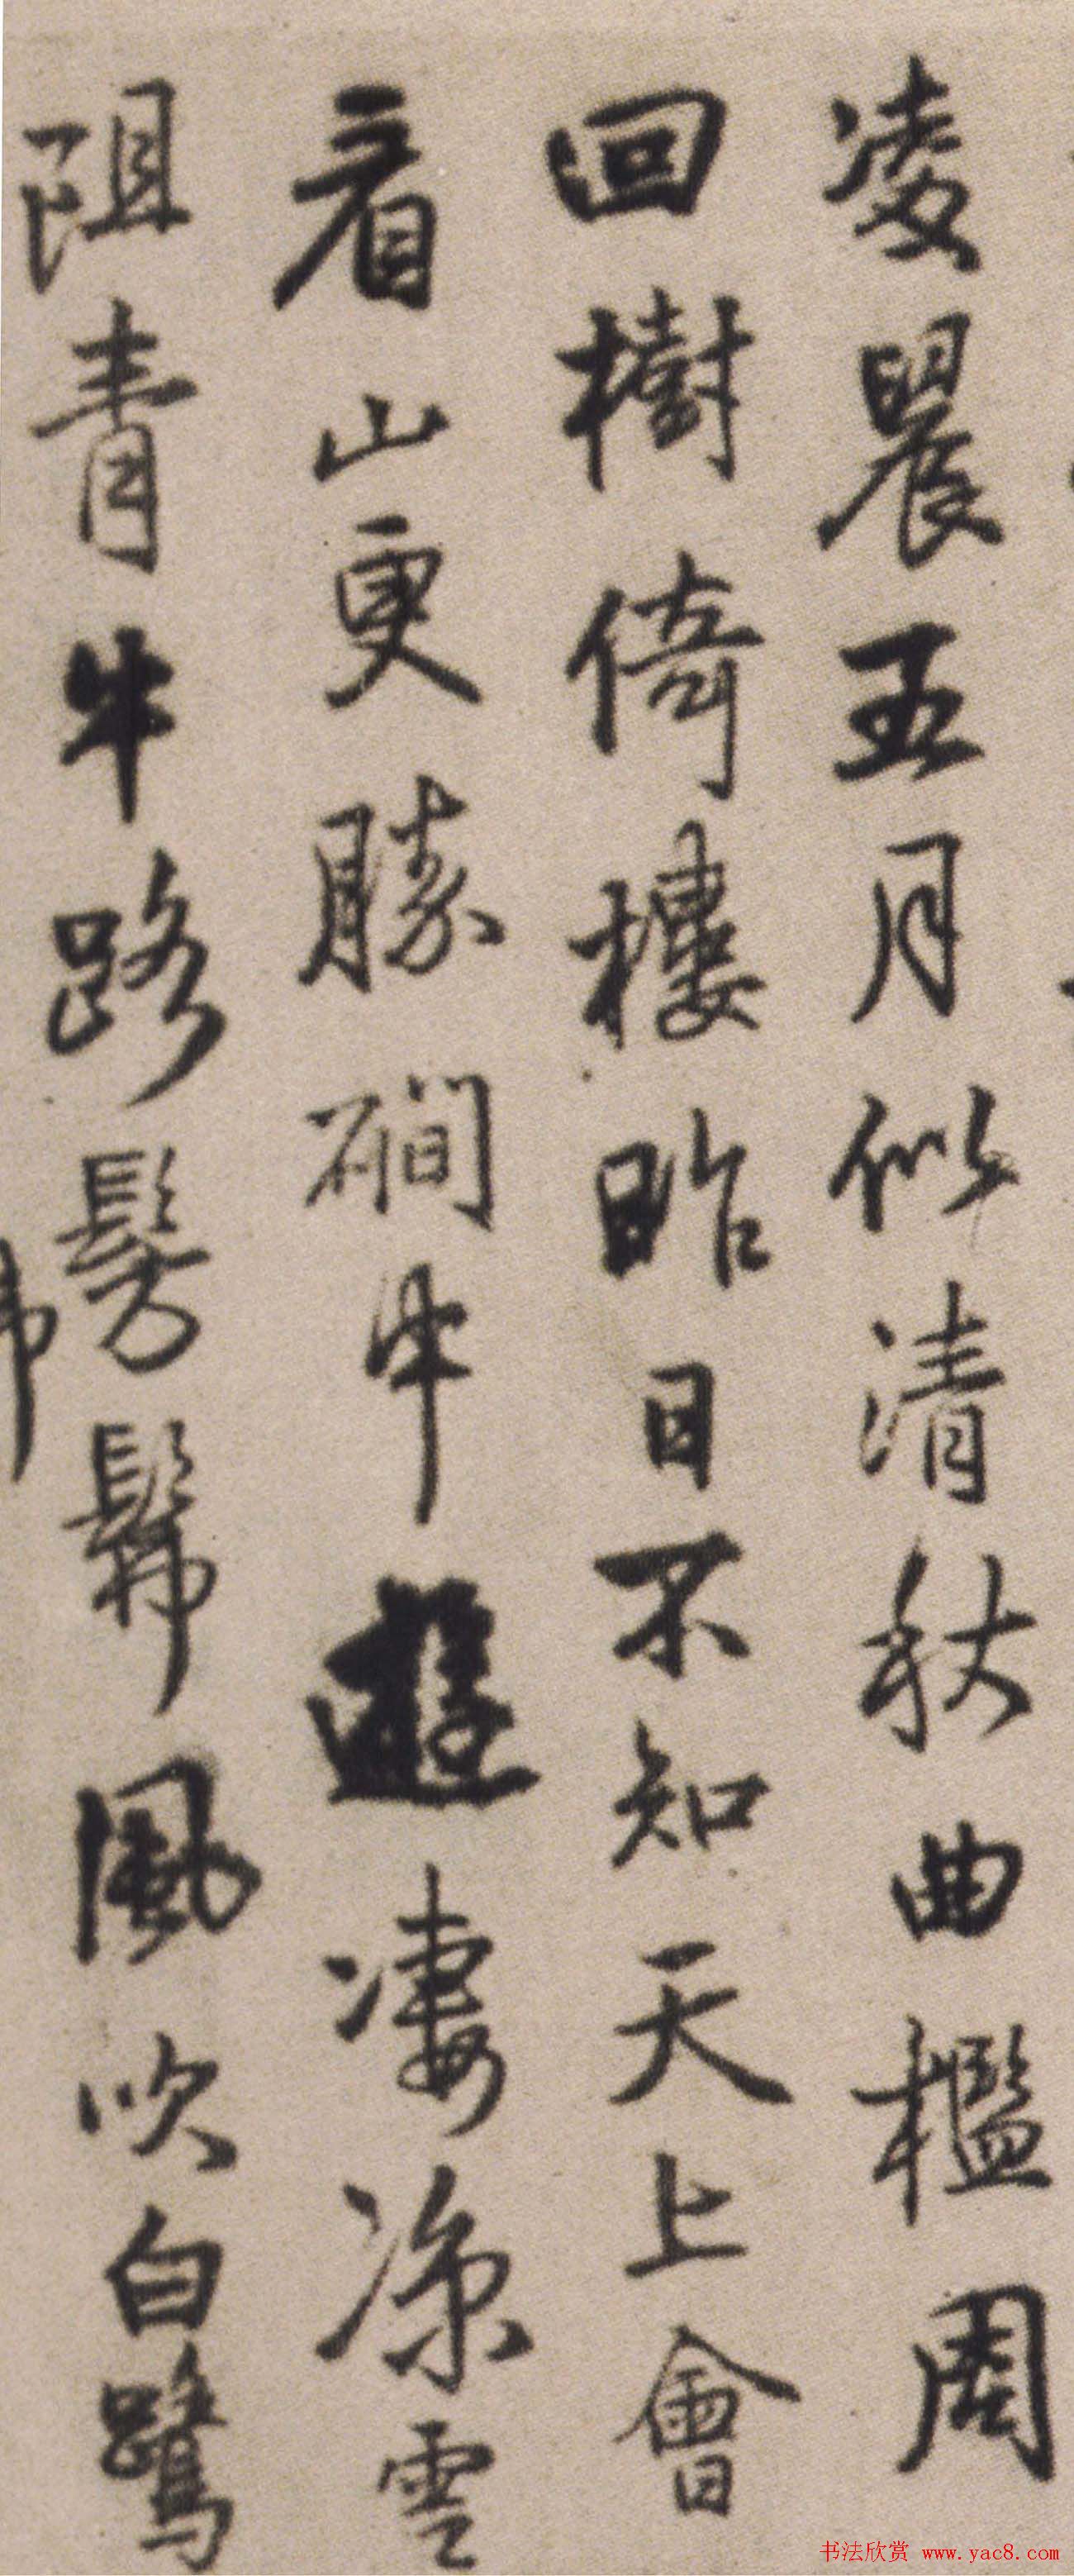 凌晨五月似清秋曲檻周
回樹倚樓昨日不知天上會
看山更勝磵中遊凄涼雲
阻青牛路髣髴風吹白鷺
书法欣赏 www.yac8.com